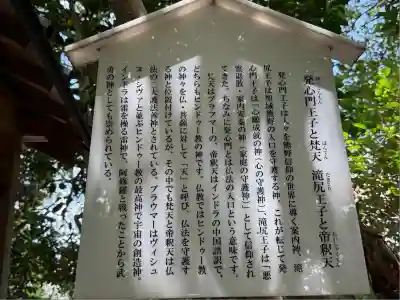 発心門王子と梵天 滝尻王子と帝釈天
発心門王子は人々を熊野信仰の世界に導く案内神、滝
尻王子は聖域熊野の入口を守護する神。これが転じて発
心門王子は「心願成就の神(心の守護神)」、滝尻王子は「悪
霊退散・家内安泰の神(家庭の守護神)」として信仰され
てきた。ちなみに発心門とは仏法の入口という意味です。
梵天はブラフマーの、帝釈天はインドラの中国語訳で、
どちらもヒンドゥー教の神です。仏教ではヒンドゥー教
の神々を仏・菩薩に対して「天」と呼び、仏法を守護す
る神と位置付けているが、その中でも梵天と帝釈天は仏
法の二大護法善神とされている。ブラウマーはヴィシュ
ヌ・シヴァと並ぶヒンドゥー教の最高神で宇宙の創造神。
インドラは雷を操る雷神で、阿修羅と戦ったことから武
勇の神としても崇められている。